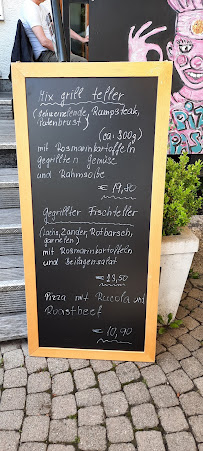 Mix grill teller
(Schweinelende, Rumpsteak,
Putenbrust)
(ca. 300g)
mit Rosmarinkartoffeln
gegrillten Gemüse
und Rahmsoße
€ 19,80
Gegrillter Fischteller
(Lachs, Zander, Rotbarsch,
garnelen)
mit Rosmarinkartoffeln
und Beilagensalat
€ 19,50
Pizza mit Rucola und
Roastbeef
€ 10,90